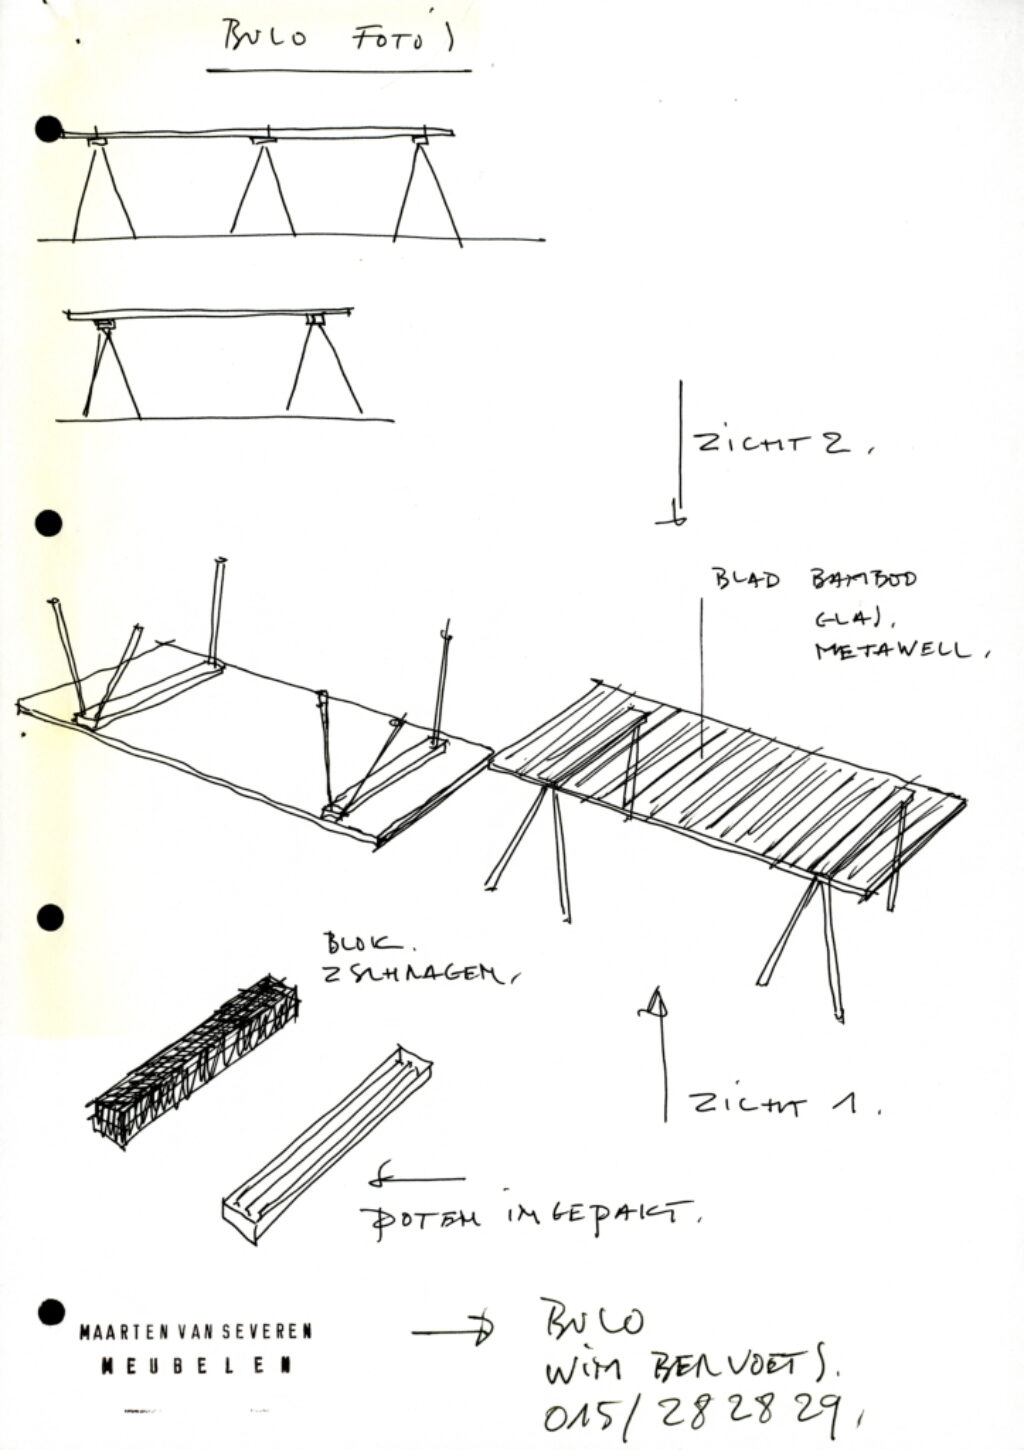 BULO FOTO'S
ZICHT 2.
BLAD BAMBOO
GLAS.
METAWELL.
BLOK.
2 SCHRAGEN.
ZICHT 1.
POTEN INGEPAKT.
MAARTEN VAN SEVEREN
MEUBELEN
BULO
WIM BERVOETS.
015/282829.